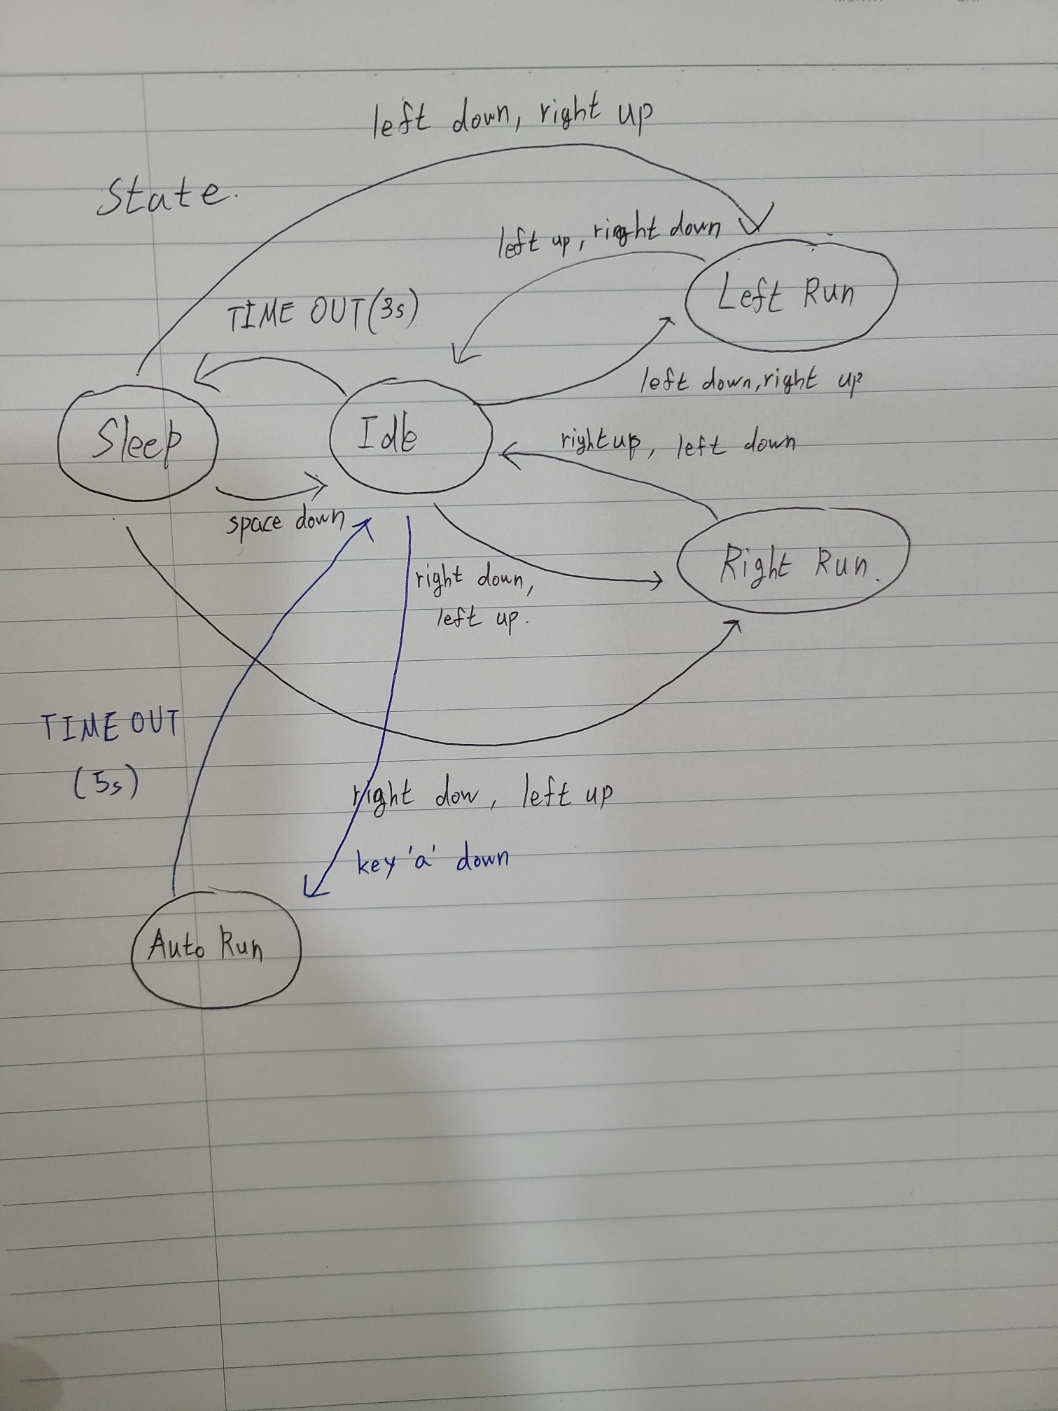 left down, right up
State.
left up, right down
Left Run
TIME OUT(3s)
left down, right up
Sleep
Idle
right up, left down
space down
Right Run.
right down,
left up.
TIME OUT
(5s)
right dow, left up
key 'a' down
Auto Run